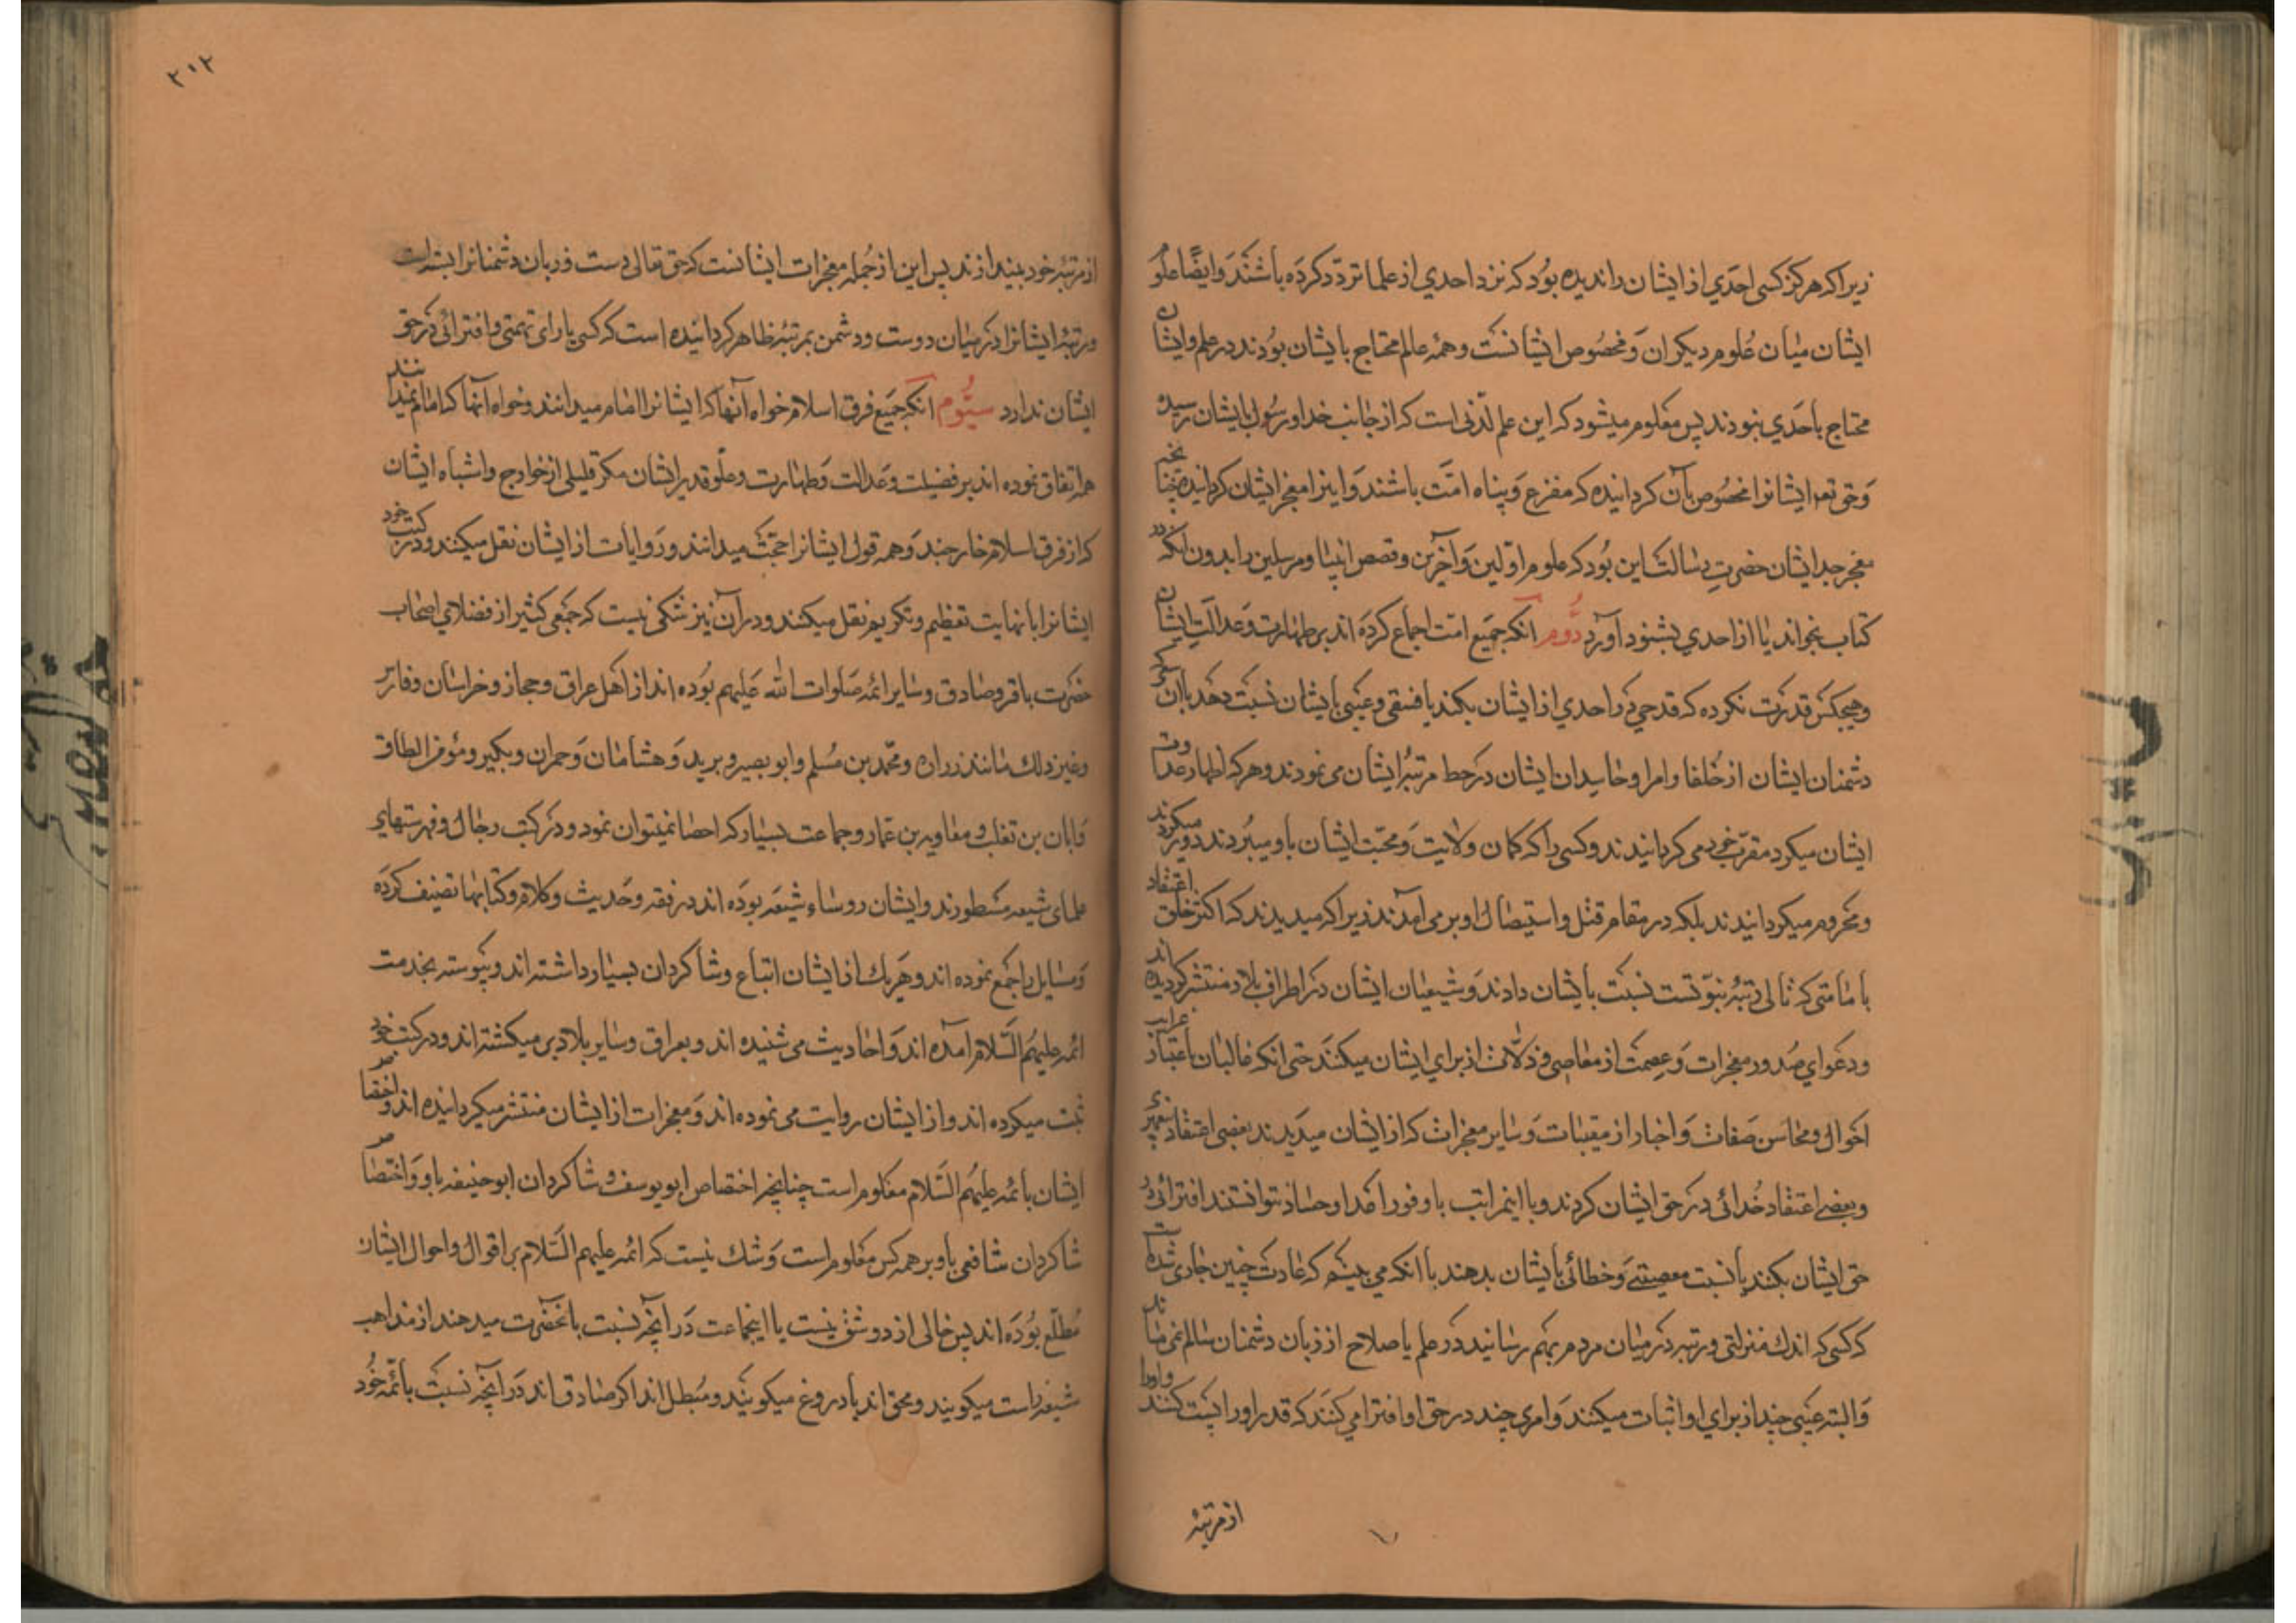 زیرا که هرگز کسی احدی از ایشان را ندیده بود که نزد احدی از علما تردّد کرده باشند و ایضًا علوم
ایشان میان علوم دیکران و مخصوص ایشانست و همه عالم محتاج بایشان بودند در علم و ایشان
محتاج باحدی نبودند پس معلوم میشود که این علم لدّنی است که از جانب خدا و رسول بایشان رسیده
و حق تعه ایشانرا مخصوص بآن کردانیده که مفزع و پناه امّت باشند و اینرا معجز ایشان کردانیده چنانچه
معجز جد ایشان حضرت رسالت این بود که علوم اوّلین و آخرین و قصص انبیا و مرسلین را بدون آنکه در
کتاب بخواند یا از احدی بشنود آورد دوّم آنکه جمیع امّت اجماع کرده اند بر طهارت و عدالت ایشان
و هیچکس قدرت نکرده که قدحی در احدی از ایشان بکند یا فسقی و عیبی بایشان نسبت دهد با آن
دشمنان ایشان از خلفا و امرا و حاسدان ایشان در حط مرتبهٔ ایشان می نمودند و هر که اظهار عداوت
ایشان میکرد مقرّب خود می کردانیدند و کسی را که کمان ولایت و محبّت ایشان باو میبردند دور میکردند
و محروم میکردانیدند بلکه در مقام قتل و استیصال او بر می آمدند زیرا که میدیدند که اکثر خلق اعتقاد
بامامتی که تالی رتبهٔ نبوّتست نسبت بایشان دارند و شیعیان ایشان در اطراف بلاد منتشر کردیده اند
و دعوای صدور معجزات و عصمت از معاصی و زلّات از برای ایشان میکنند حتی انکه غالیان باعتبار غرایب
احوال و محاسن صفات و اخبار از مغیبات و سایر معجزات که از ایشان میدیدند بعضی اعتقاد پیغمبری
و بعضی اعتقاد خدائی در حق ایشان کردند و با اینمراتب با وفور اعدا و حسّاد نتوانستند افترائی در
حق ایشان بکنند یا نسبت معصیتی و خطائی بایشان بدهند با انکه می بینیم که عادت چنین جاری شده است
که کسی که اندک منزلتی و رتبهٔ در میان مردم بهم رسانید در علم یا صلاح از زبان دشمنان سالم نمی ماند
و البته عیبی چند از برای او اثبات میکنند و امری چند در حق او افترا می کنند که قدر او را پست کنند و او را
از مرتبهٔ
۳۱۳
از مرتبهٔ خود بیندازند پس این از جمله معجزات ایشانست که حق تعالی دست و زبان دشمنانرا بسته است
و رتبهٔ ایشانرا در میان دوست و دشمن بمرتبهٔ ظاهر کردانیده است که کسی یارای تهمتی و افترائی در حق
ایشان ندارد سیّوم آنکه جمیع فرق اسلام خواه آنها که ایشانرا امام میدانند و خواه آنها که امام نمیدانند
همه اتفاق نموده اند بر فضیلت و عدالت و طهارت و علّو قدر ایشان مکر قلیلی از خوارج و اشباه ایشان
که از فرق اسلام خارجند و همه قول ایشانرا حجّت میدانند و روایات از ایشان نقل میکنند و در کتب خود
ایشانرا با نهایت تعظیم و تکریم نقل میکنند و در آن نیز شکی نیست که جمعی کثیر از فضلای اصحاب
حضرت باقر و صادق و سایر ائمه صلوات الله علیهم بوده اند از اهل عراق و حجاز و خراسان و فارس
و غیر ذلک مانند زراره و محمّد بن مسلم و ابو بصیر و برید و هشامان و حمران و بکیر و مؤمن الطاق
و ابان بن تغلب و معاویه بن عمار و جماعت بسیار که احصا نمیتوان نمود و در کتب رجال و فهرستهای
علمای شیعه مسطورند و ایشان روساء شیعه بوده اند در فقه و حدیث و کلام و کتابها تصنیف کرده
و مسایل را جمع نموده اند و هر یک از ایشان اتباع و شاکردان بسیار داشته اند و پیوسته بخدمت
ائمه علیهم السّلام آمده اند و احادیث می شنیده اند و بعراق و سایر بلاد بر میکشته اند و در کتب خود
ثبت میکرده اند و از ایشان روایت می نموده اند و معجزات از ایشان منتشر میکردانیده اند و اختصاص
ایشان بائمه علیهم السّلام معلوم است چنانچه اختصاص ابو یوسف و شاکردان ابو حنیفه باو و اختصاص
شاکردان شافعی باو بر همه کس معلوم است و شک نیست که ائمه علیهم السّلام بر اقوال و احوال ایشان
مطّلع بوده اند پس خالی از دو شق نیست یا اینجماعت در آنچه نسبت بانحضرت میدهند از مذاهب
شیعه راست میکویند و محق اند یا دروغ میکویند و مبطل اند اکر صادق اند در آنچه نسبت بائمّه خود